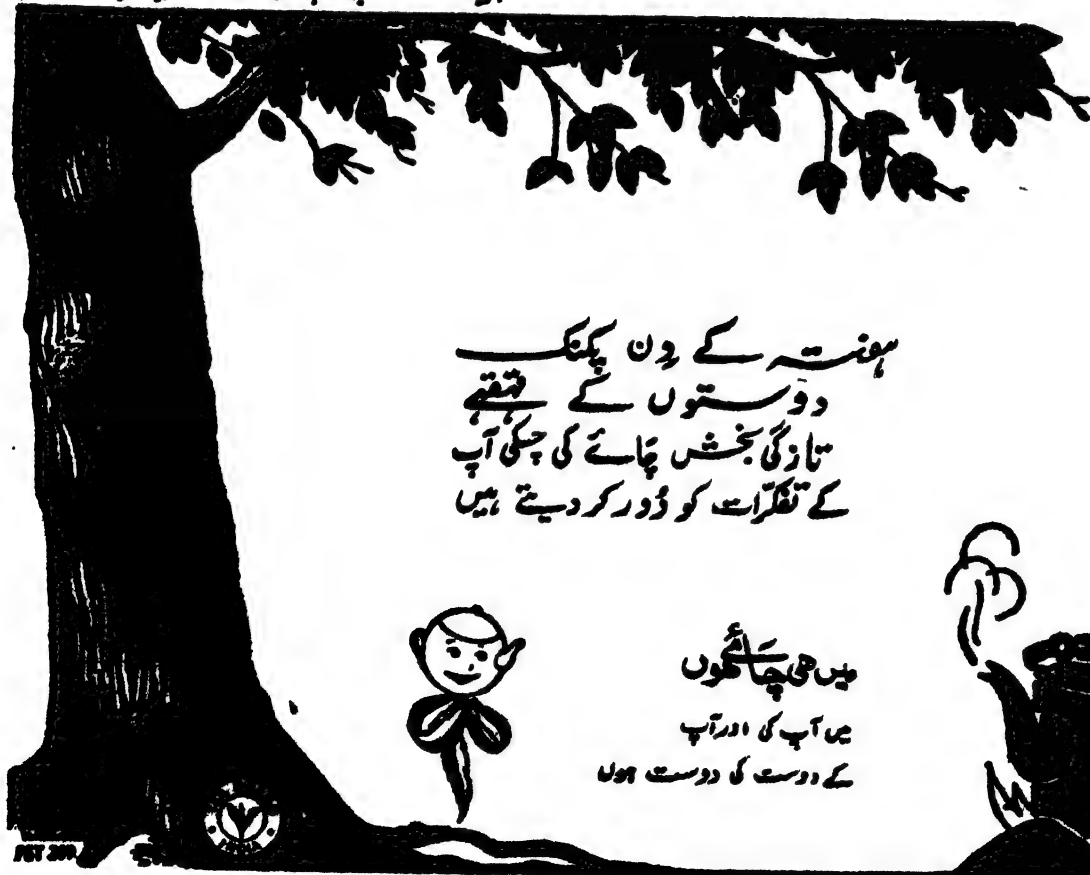 ہفتہ کے دن پکنک
دوستوں کے قہقہے
تازگی بخش چائے کی چسکی آپ
کے تفکرّات کو دُور کر دیتے ہیں
میں ہی چائے ہوں
میں آپ کی اور آپ
کے دوست کی دوست ہوں